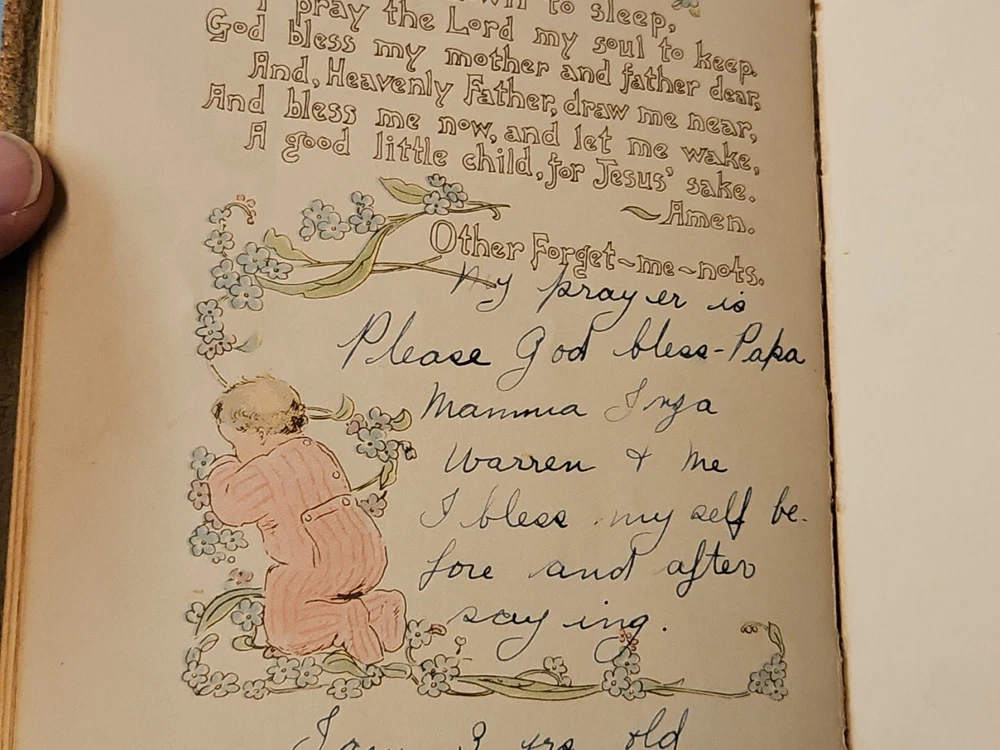 to sleep,
I pray the Lord my soul to keep.
God bless my mother and father dear,
And, Heavenly Father, draw me near,
And bless me now, and let me wake,
A good little child, for Jesus' sake.
~Amen.
Other Forget~me~nots.
My prayer is
Please God bless-Papa
Mamma Inga
Warren & me
I bless my self be-
fore and after
saying.
I am 3 yrs old